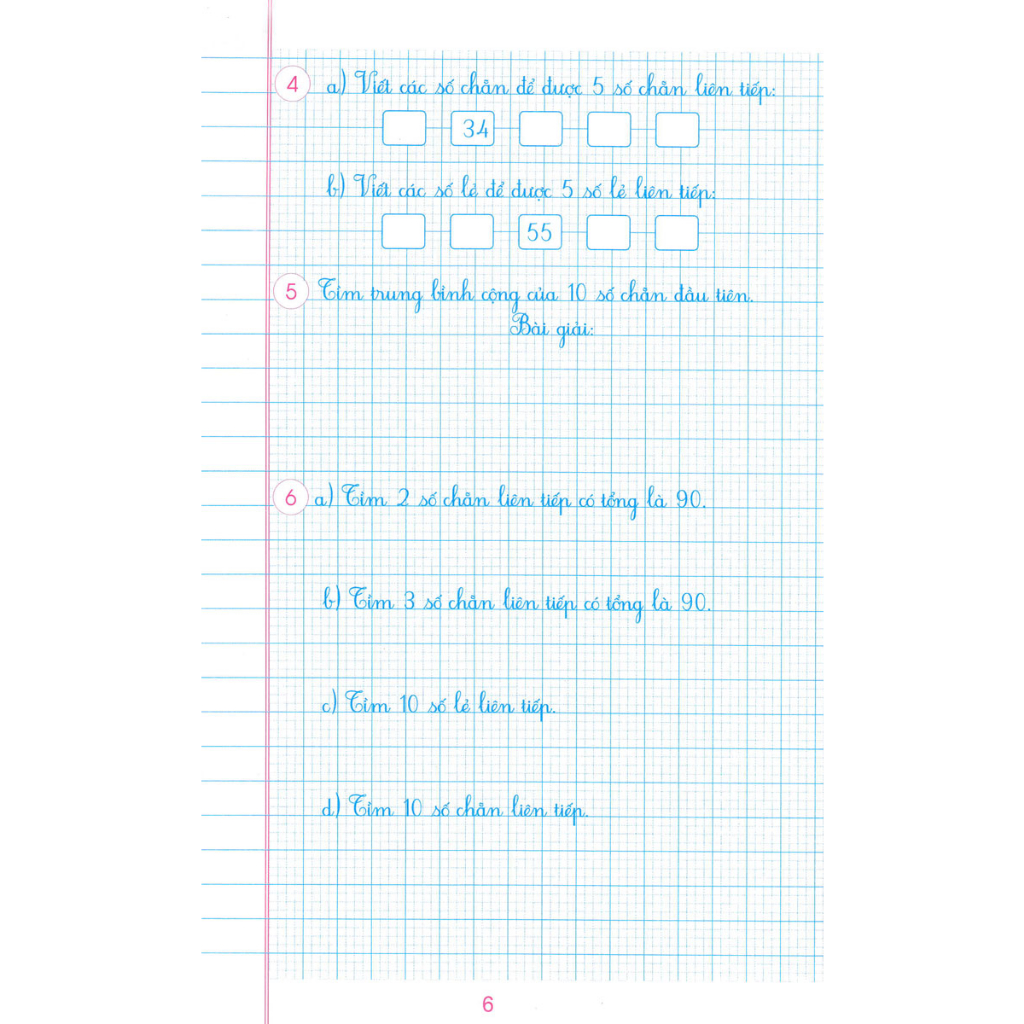 4 a) Viết các số chẵn để được 5 số chẵn liên tiếp:
34
b) Viết các số lẻ để được 5 số lẻ liên tiếp:
55
5 Tìm trung bình cộng của 10 số chẵn đầu tiên.
Bài giải:
6 a) Tìm 2 số chẵn liên tiếp có tổng là 90.
b) Tìm 3 số chẵn liên tiếp có tổng là 90.
c) Tìm 10 số lẻ liên tiếp.
d) Tìm 10 số chẵn liên tiếp.
6